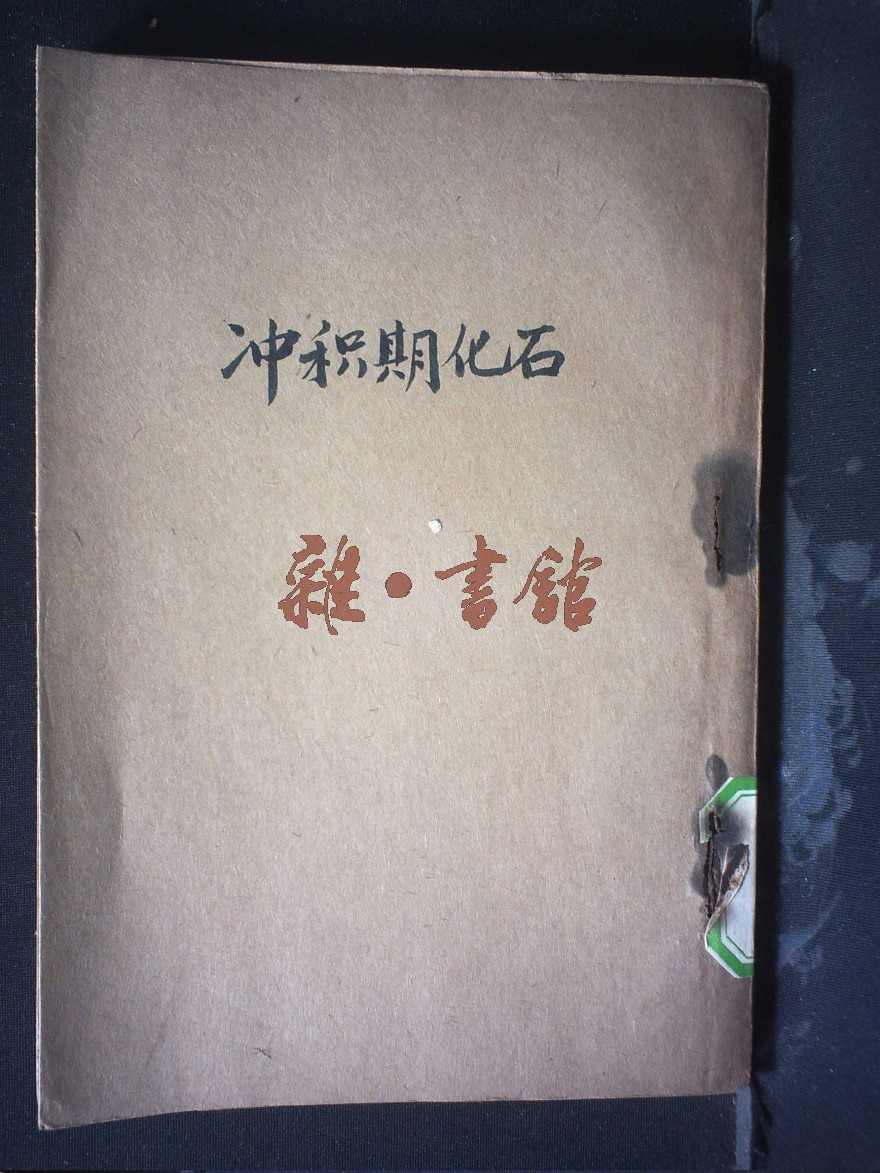 冲积期化石
雜·書館